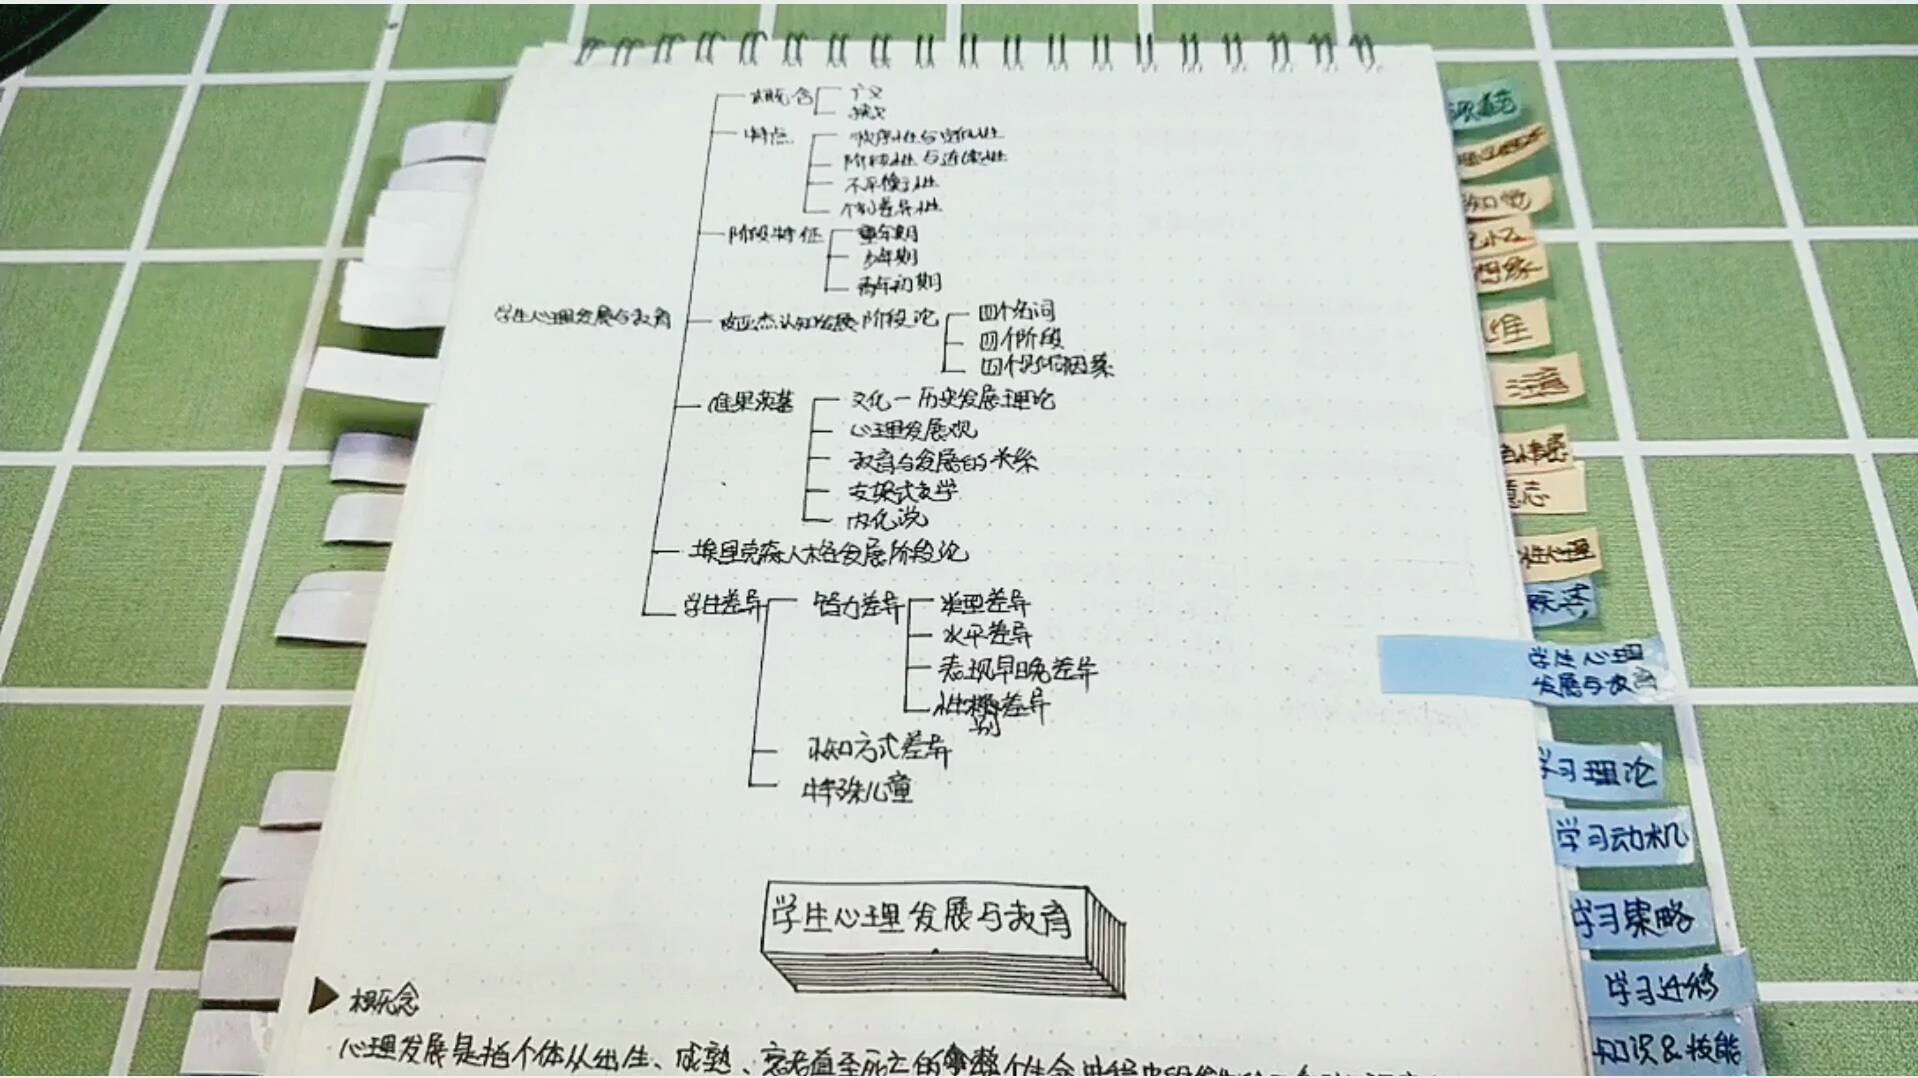 概念
广义
狭义
特点
顺序性与定向性
阶段性与连续性
不平衡性
个别差异性
阶段特征
童年期
少年期
青年初期
学生心理发展与教育
皮亚杰认知发展阶段论
四个名词
四个阶段
四个影响因素
维果茨基
文化一历史发展理论
心理发展观
教育与发展的关系
支架式教学
内化说
埃里克森人格发展阶段论
学生差异
智力差异
类型差异
水平差异
表现早晚差异
性别差异
认知方式差异
特殊儿童
学生心理发展与教育
概念
心理发展是指个体从出生、成熟、衰老直至死亡的整个生命进程中
知觉
想象
注意
情感
意志
性心理
概述
学生心理
发展与教育
学习理论
学习动机
学习策略
学习迁移
知识&技能